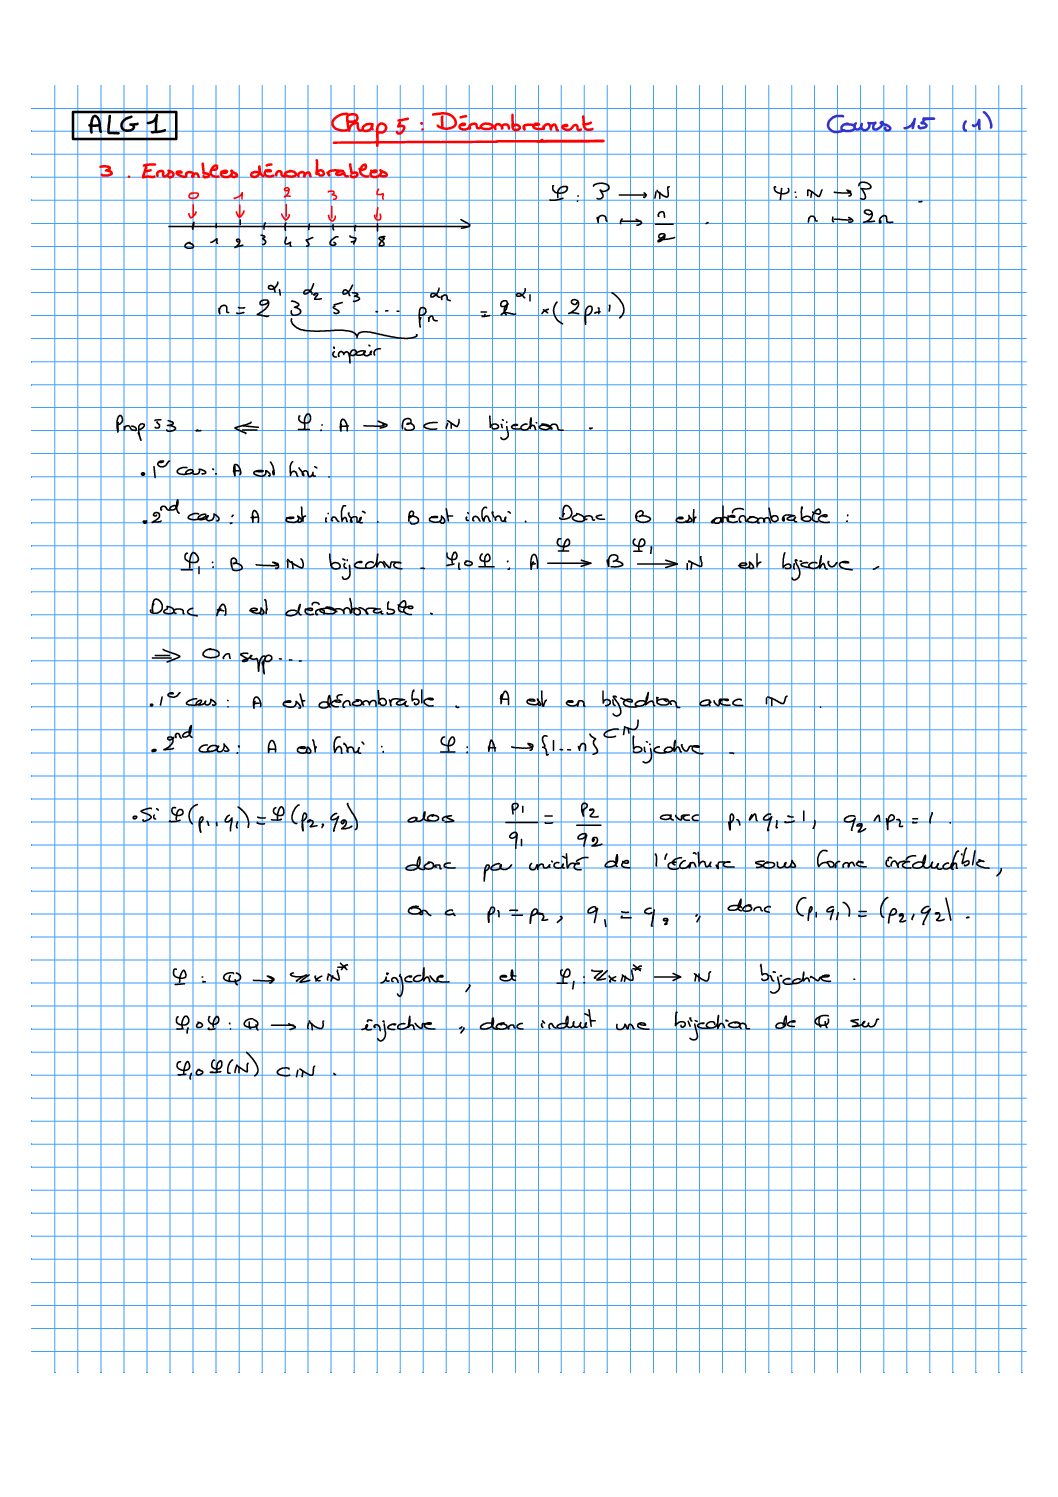 ALG 1
Chap 5 : Dénombrement
Cours 15 (1)
3. Ensembles dénombrables
0 1 2 3 4
0 1 2 3 4 5 6 7 8
φ : P → ℕ
n ↦ n/2 .
ψ : ℕ → P
n ↦ 2n .
n = 2^α₁ 3^α₂ 5^α₃ ... pₙ^αₙ = 2^α₁ × (2p+1)
impair
Prop 53 - ⇐ φ : A → B ⊂ ℕ bijection .
. 1er cas : A est fini .
. 2nd cas : A est infini . B est infini . Donc B est dénombrable :
φ₁ : B → ℕ bijective . φ₁∘φ : A →(φ) B →(φ₁) ℕ est bijective .
Donc A est dénombrable .
⇒ On supp...
. 1er cas : A est dénombrable . A est en bijection avec ℕ .
. 2nd cas : A est fini : φ : A → {1..n} ⊂ ℕ bijective .
. Si φ(p₁,q₁) = φ(p₂,q₂) alors p₁/q₁ = p₂/q₂ avec p₁∧q₁=1, q₂∧p₂=1 .
donc par unicité de l'écriture sous forme irréductible,
on a p₁=p₂, q₁=q₂, donc (p₁,q₁)=(p₂,q₂) .
φ : ℚ → ℤ×ℕ* injective, et φ₁ : ℤ×ℕ* → ℕ bijective .
φ₁∘φ : ℚ → ℕ injective, donc induit une bijection de ℚ sur
φ₁∘φ(ℕ) ⊂ ℕ .